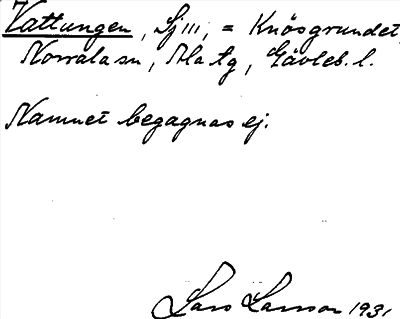 Vattungen, Sj III, = Knösgrundet,
Norrala sn, Ala tg, Gävleb. l.
Namnet begagnas ej.
Lars Larsson 1931